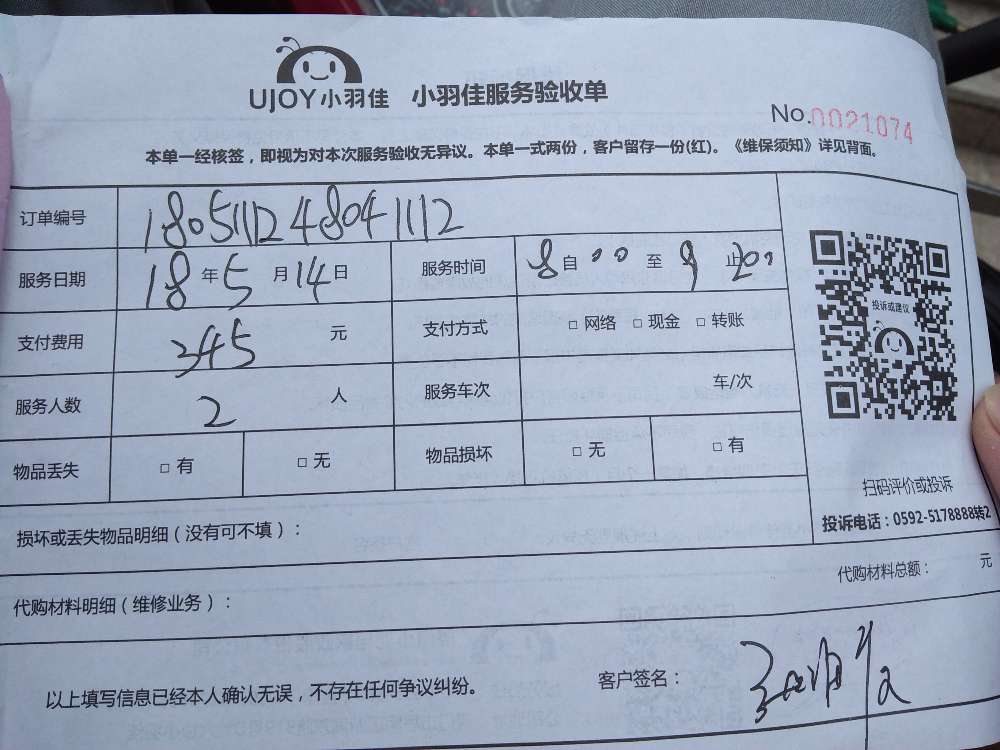 UJOY小羽佳 小羽佳服务验收单
No.0021074
本单一经核签，即视为对本次服务验收无异议。本单一式两份，客户留存一份(红)。《维保须知》详见背面。
订单编号 1805111248041112
服务日期 18年5月14日 服务时间 8自00至9止20
支付费用 345元 支付方式 □网络 □现金 □转账
服务人数 2人 服务车次 车/次
物品丢失 □有 □无 物品损坏 □无 □有
投诉或建议
扫码评价或投诉
投诉电话：0592-5178888转2
损坏或丢失物品明细（没有可不填）：
代购材料明细（维修业务）： 代购材料总额： 元
以上填写信息已经本人确认无误，不存在任何争议纠纷。 客户签名：